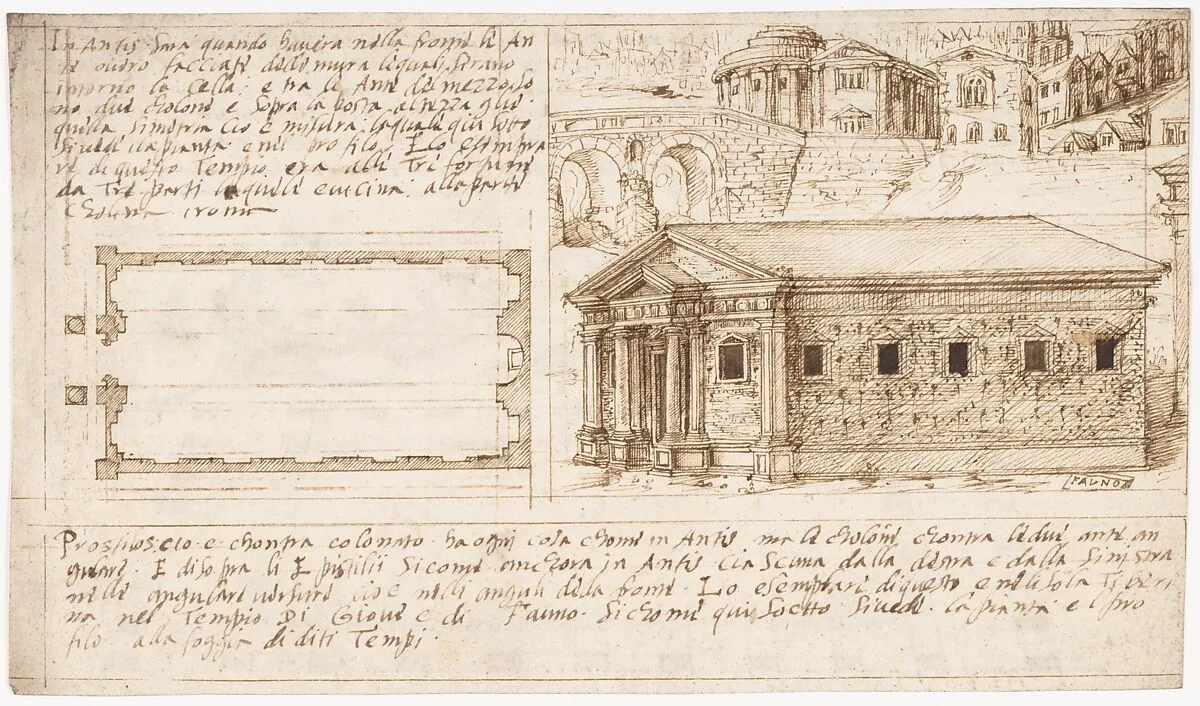 In Antis sara quando havera nella fronte le An
te overo facciate delle mura lequali sarano
intorno la Cella: e tra le Ante del mezzo, so
no due cholone e sopra la posta
quella simetria cio e misura laquale qui soto
si vede la pianta e nel profilo. Lo esempla
re di questo Tempio era alle Tre fortune
da Tre parti laquale e vicina alla porta
FAUNO
Prostilos. cio e chontra colonato ha ogni cosa chome in Antis ma le cholone chontra le due ante an
gulare. E di sopra li E pistilii sicome anchora in Antis Ciascuna dalla destra e dalla Sinistra
nelle angulare versure cio e nelli anguli della fronte. Lo esemplare di questo e nel isola Tiberi
na nel Tempio Di Giove e di Fauno. Sichome qui Sotto Si vede. la pianta e l pro
filo. alla foggia di diti Tempi.